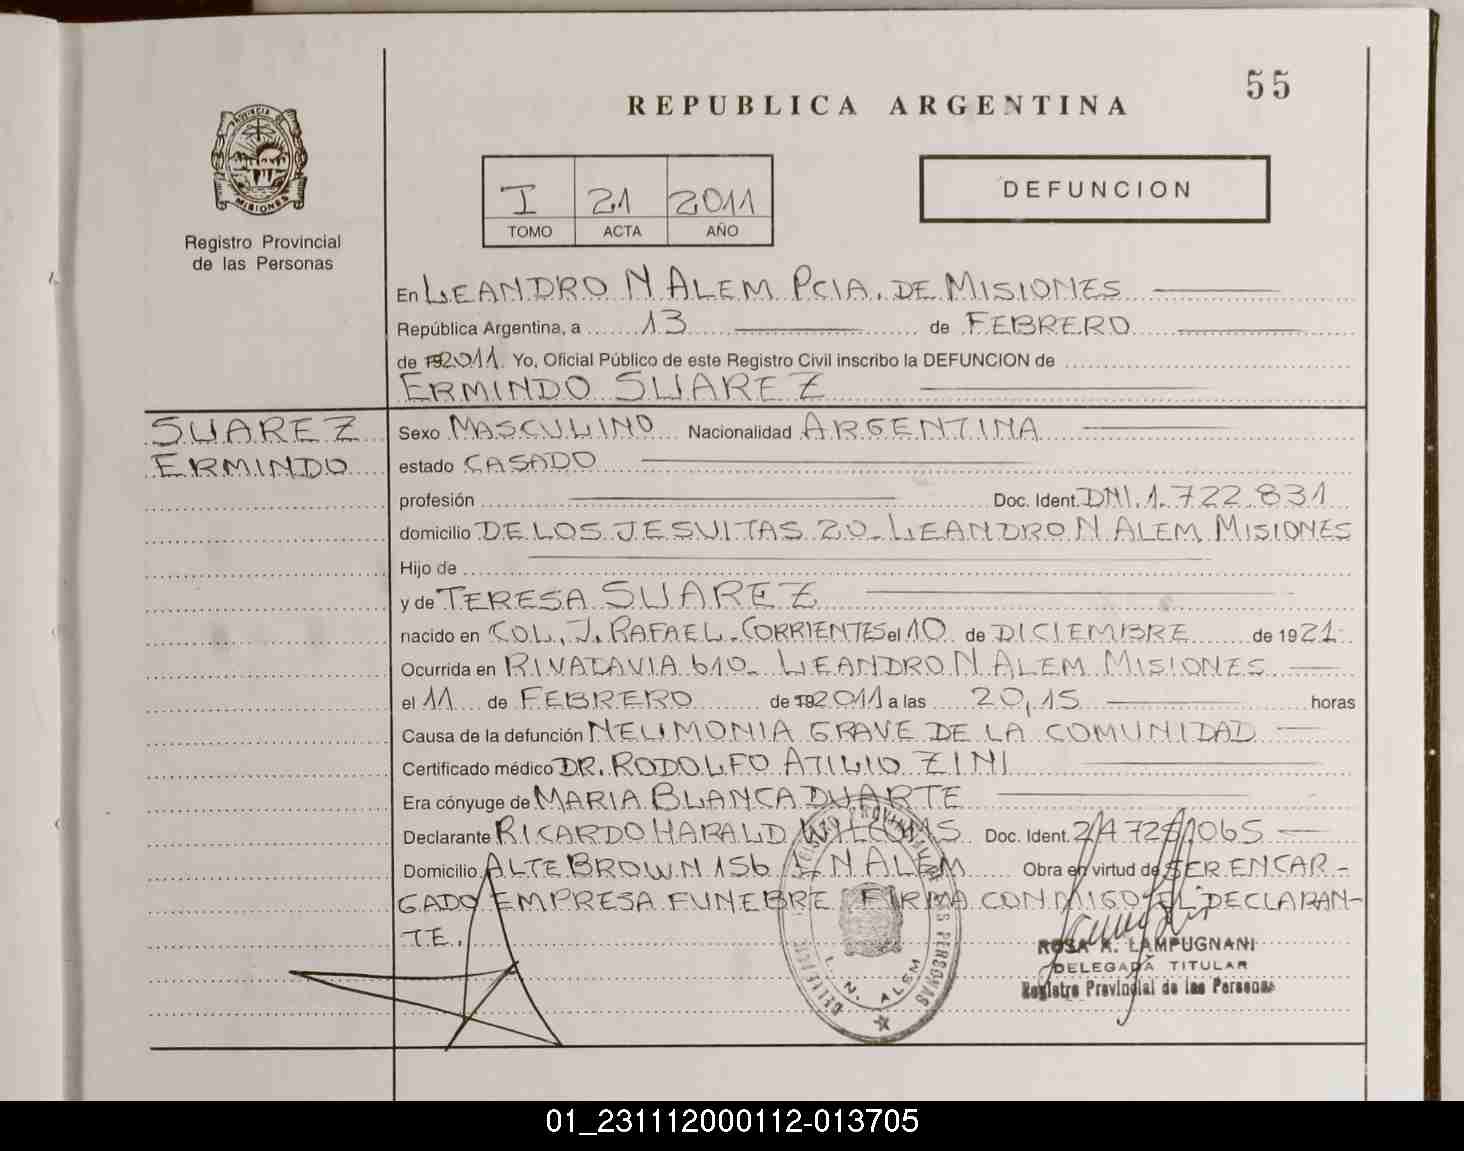 55
REPUBLICA ARGENTINA
PROVINCIA DE
MISIONES
Registro Provincial
de las Personas
I 21 2011
TOMO ACTA AÑO
DEFUNCION
En LEANDRO N ALEM PCIA. DE MISIONES
República Argentina, a 13 de FEBRERO
de 192011. Yo, Oficial Público de este Registro Civil inscribo la DEFUNCION de
ERMINDO SUAREZ
SUAREZ
ERMINDO
Sexo MASCULINO Nacionalidad ARGENTINA
estado CASADO
profesión Doc. Ident. DNI. 1.722.831
domicilio DE LOS JESUITAS 20_ LEANDRO N ALEM MISIONES
Hijo de
y de TERESA SUAREZ
nacido en COL. J. RAFAEL_CORRIENTES el 10 de DICIEMBRE de 1921
Ocurrida en RIVATAVIA 610_ LEANDRO N ALEM MISIONES
el 11 de FEBRERO de 192011 a las 20,15 horas
Causa de la defunción NEUMONIA GRAVE DE LA COMUNIDAD
Certificado médico DR. RODOLFO ATILIO ZINI
Era cónyuge de MARIA BLANCA DUARTE
Declarante RICARDO HARALD Doc. Ident.
Domicilio ALTE BROWN 156 L N ALEM Obra en virtud de SER ENCAR-
GADO EMPRESA FUNEBRE FIRMA CONMIGO EL DECLARAN-
TE.
REGISTRO PROVINCIAL DE LAS PERSONAS
L. N. ALEM
ROSA A. LAMPUGNANI
DELEGADA TITULAR
Registro Provincial de las Personas
01_231112000112-013705